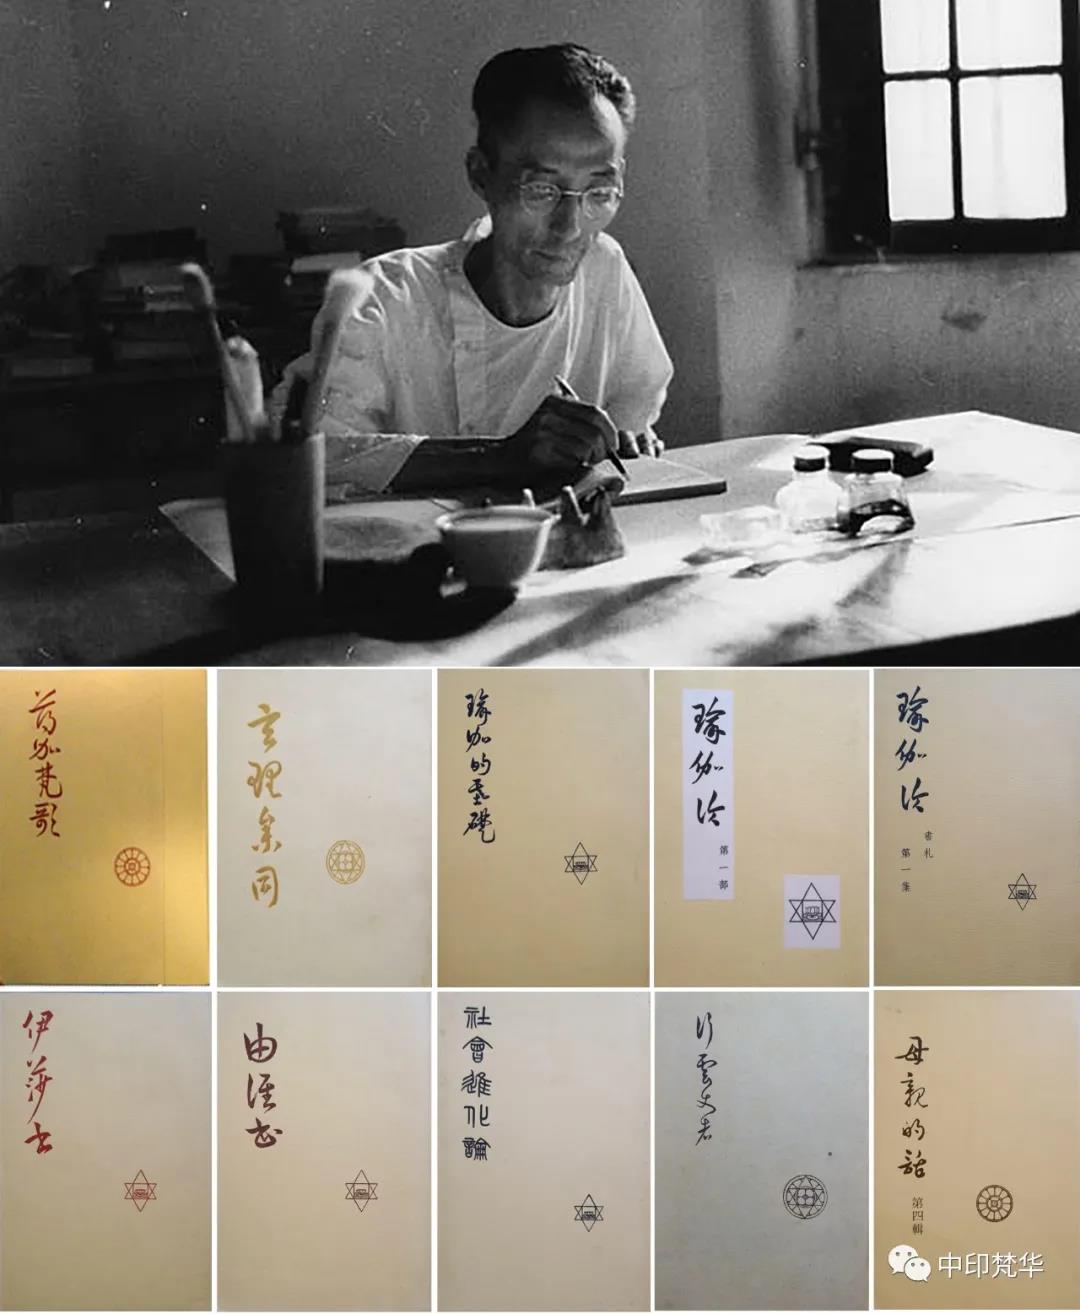 薄伽梵歌
玄理參同
瑜伽的基礎
瑜伽論
第一部
瑜伽論
書札
第一集
伊莎書
由誰書
社會進化論
行雲使者
母親的話
第四輯
中印梵华